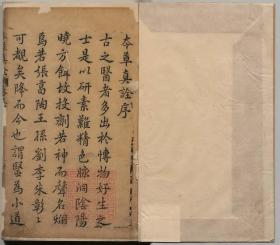 本草真詮序
古之醫者多出於博物好生之
士是以研素難精色脉洞陰陽
曉方餌故投劑若神而聲名烟
焉若張葛陶王孫劉李朱彰彰
可覩矣降而今也謂醫為小道